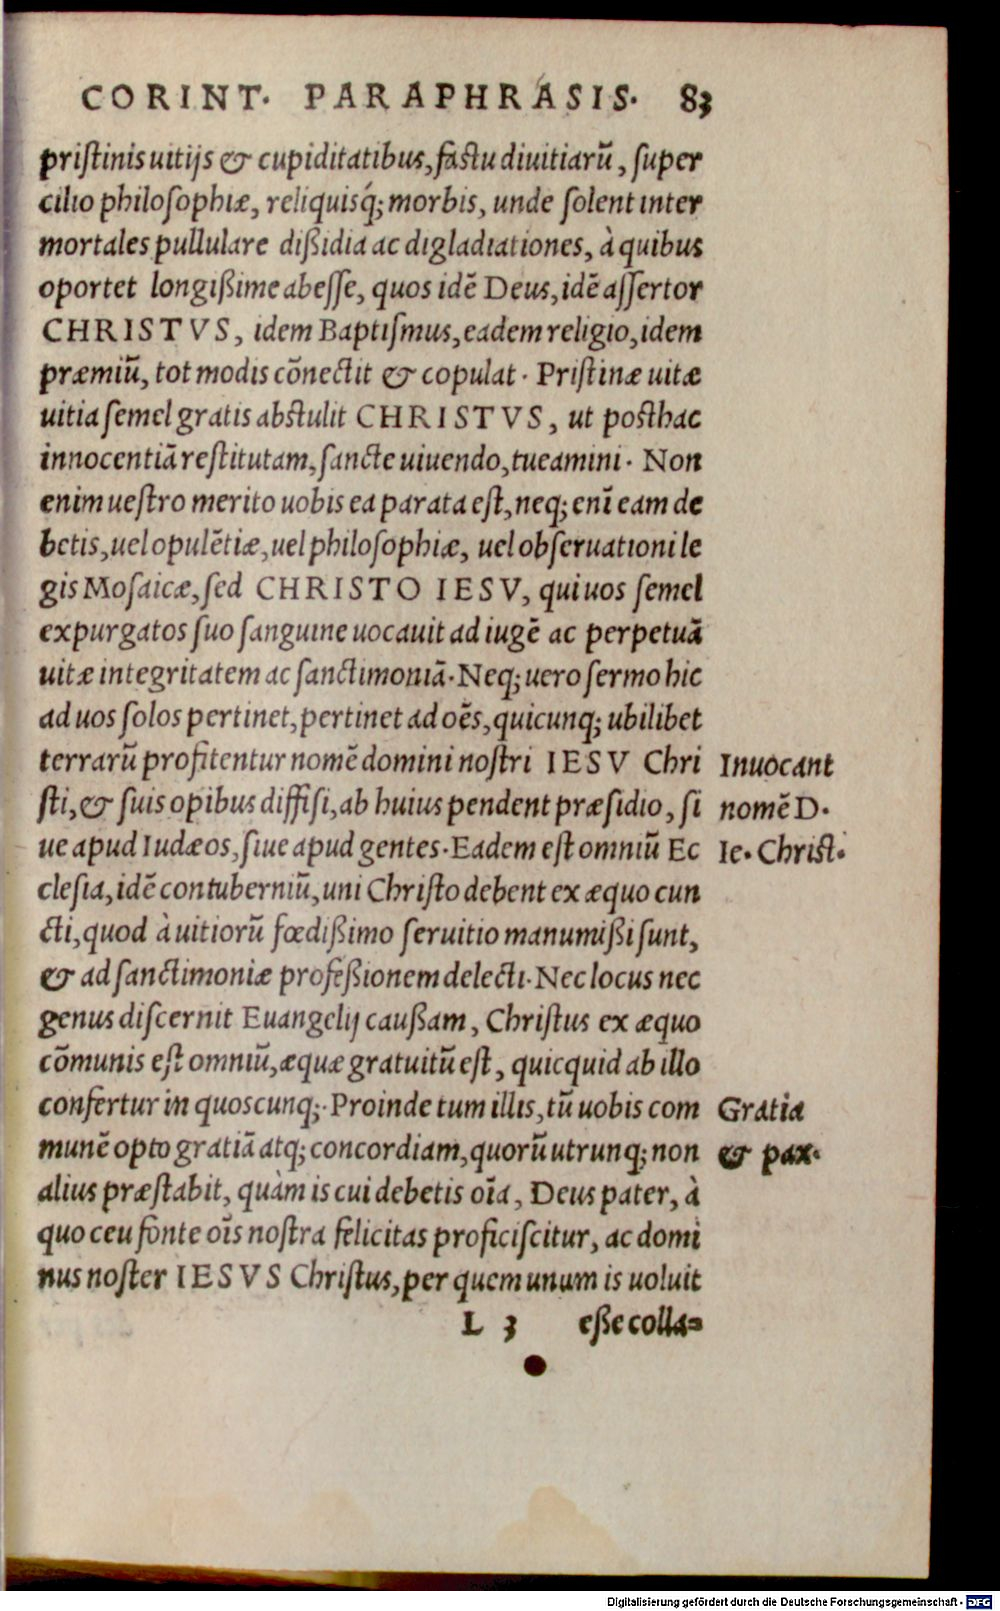 CORINT. PARAPHRASIS. 83
pristinis uitijs & cupiditatibus, fastu diuitiarũ, super
cilio philosophiæ, reliquisq́; morbis, unde solent inter
mortales pullulare dißidia ac digladiationes, à quibus
oportet longißime abesse, quos idẽ Deus, idẽ assertor
CHRISTVS, idem Baptismus, eadem religio, idem
præmiũ, tot modis cõnectit & copulat. Pristinæ uitæ
uitia semel gratis abstulit CHRISTVS, ut posthac
innocentiã restitutam, sancte uiuendo, tueamini. Non
enim uestro merito uobis ea parata est, neq; enĩ eam de
betis, uel opulẽtiæ, uel philosophiæ, uel obseruationi le
gis Mosaicæ, sed CHRISTO IESV, qui uos semel
expurgatos suo sanguine uocauit ad iugẽ ac perpetuã
uitæ integritatem ac sanctimoniã. Neq; uero sermo hic
ad uos solos pertinet, pertinet ad oẽs, quicunq; ubilibet
terrarũ profitentur nomẽ domini nostri IESV Chri
sti, & suis opibus diffisi, ab huius pendent præsidio, si
ue apud Iudæos, siue apud gentes. Eadem est omniũ Ec
clesia, idẽ contuberniũ, uni Christo debent ex æquo cun
cti, quod à uitiorũ fœdißimo seruitio manumißi sunt,
& ad sanctimoniæ profeßionem delecti. Nec locus nec
genus discernit Euangelij caußam, Christus ex æquo
cõmunis est omniũ, æquæ gratuitũ est, quicquid ab illo
confertur in quoscunq;. Proinde tum illis, tũ uobis com
munẽ opto gratiã atq; concordiam, quorũ utrunq; non
alius præstabit, quàm is cui debetis oĩa, Deus pater, à
quo ceu fonte oĩs nostra felicitas proficiscitur, ac domi
nus noster IESVS Christus, per quem unum is uoluit
L 3 eße colla=
Inuocant
nomẽ D.
Ie. Christ.
Gratia
& pax.
Digitalisierung gefördert durch die Deutsche Forschungsgemeinschaft - DFG